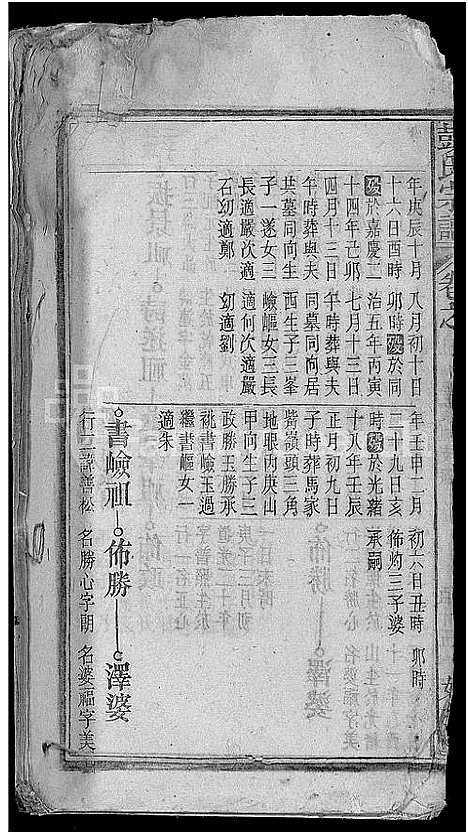 氏宗譜
卷之
年庚辰十月
十六日酉時
歿於嘉慶二
十四年己卯
四月十三日
午時葬與夫
共墓同向生
子一遂女三
長適嚴次適
石幼適鄭
八月初十日
卯時歿於同
治五年丙寅
七月十三日
午時葬與夫
同墓同向居
西生子三峯
嶮嶇女三長
適何次適嚴
幼適劉
年壬申二月
二十九日亥
時歿於光緒
十八年壬辰
正月初九日
子時葬馬家
觜嶺頭三角
地眼丙庚山
甲向生子三
政勝玉勝承
祧書嶮玉過
繼書嶇女一
適朱
初六日丑時
佈灼三子婆
承嗣
卯時
書嶮祖 佈勝 澤婆
行三諱善松 名勝心字朝 名婆福字美